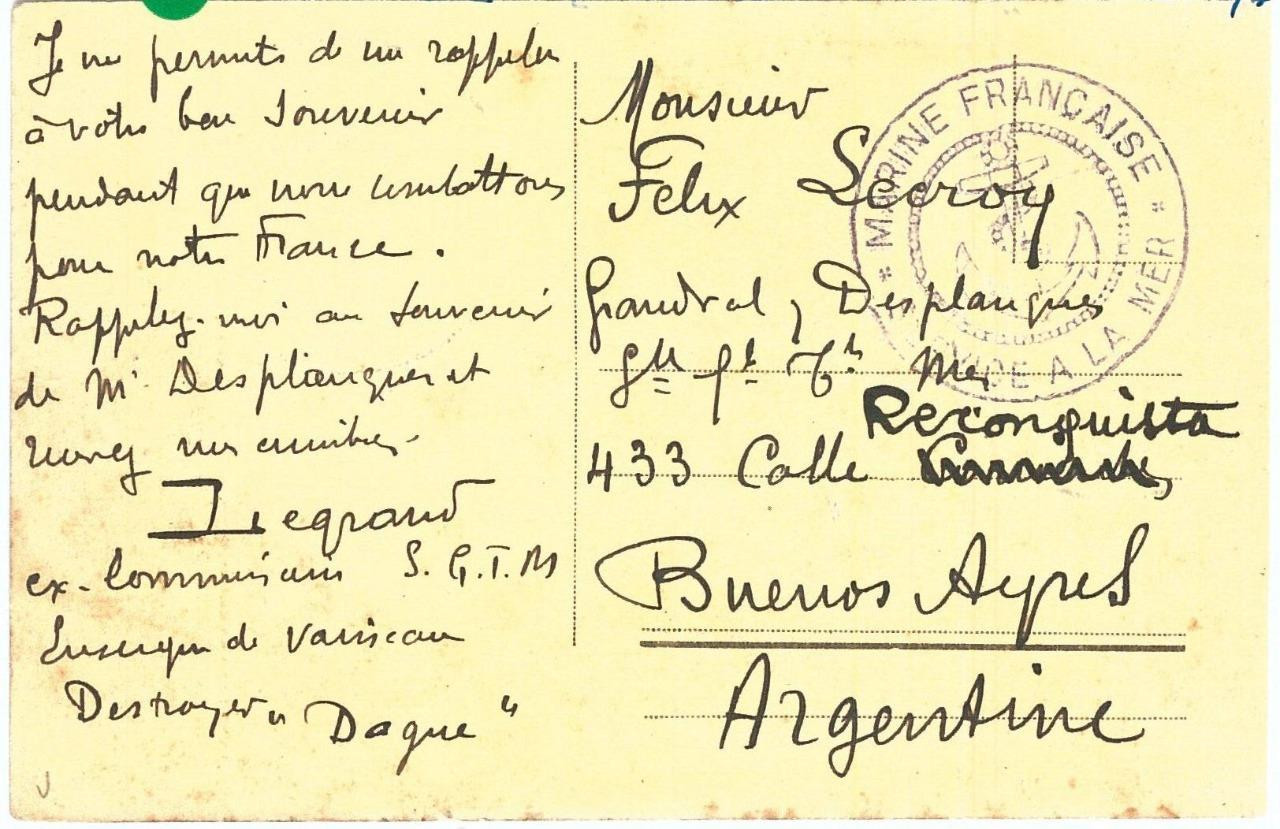 Je me permets de me rappeler
à votre bon souvenir
pendant que nous combattons
pour notre France.
Rappelez-moi au souvenir
de Mr Desplanques et
mes amitiés.
Legrand
ex-Commissaire S.G.T.M
Enseigne de Vaisseau
Destroyer "Dague"
Monsieur
Felix Lecroy
Grandval, Desplanques
Sté Gle Tts Mes
Reconquista
433 Calle
Buenos Ayres
Argentine
* MARINE FRANÇAISE *
SERVICE A LA MER